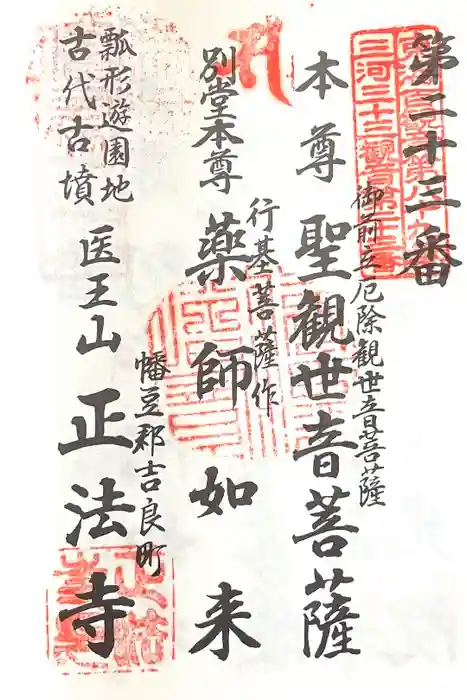 第二十三番
三河三十三観音第二十三番
御前立厄除観世音菩薩
本尊 聖観世音菩薩
行基菩薩作
別堂本尊 薬師如来
幡豆郡吉良町
瓢形遊園地
古代古墳
医王山 正法寺